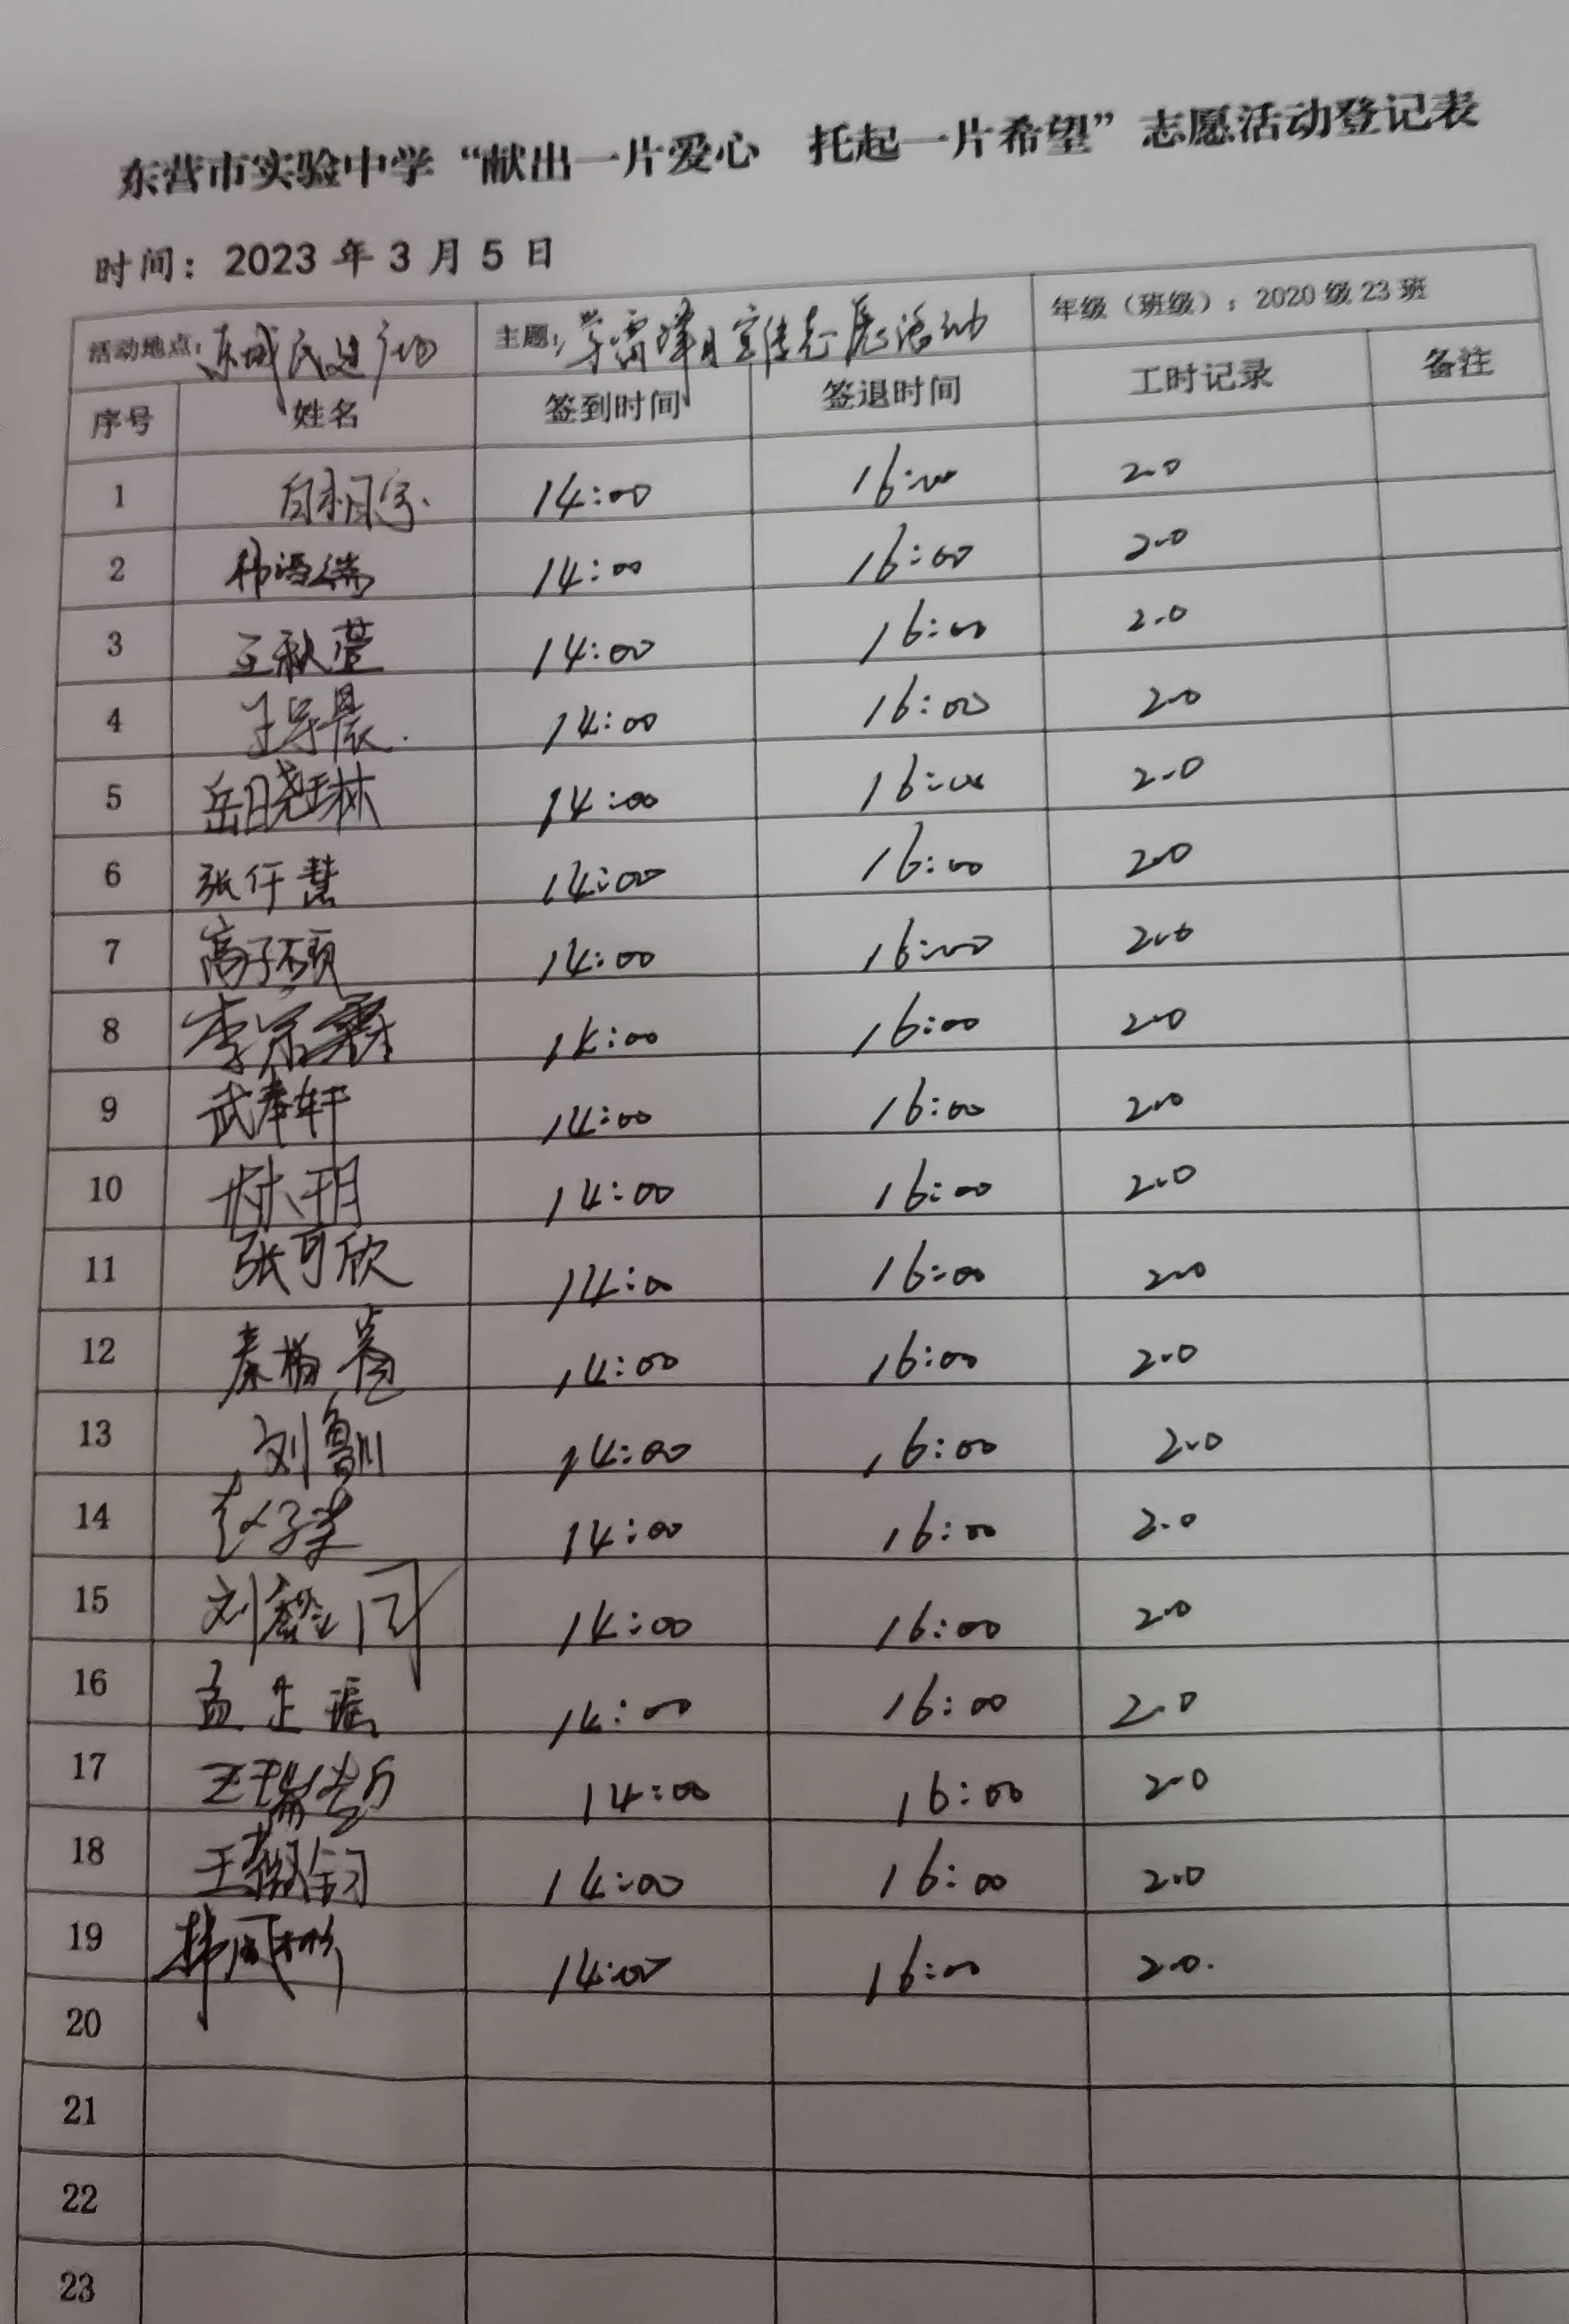 东营市实验中学“献出一片爱心 托起一片希望”志愿活动登记表
时间：2023 年 3 月 5 日
活动地点：东城民进广场 主题：学雷锋日宣传志愿活动 年级（班级）：2020 级 23 班
序号 姓名 签到时间 签退时间 工时记录 备注
1 14:00 16:00 2.0
2 14:00 16:00 2.0
3 王秋莹 14:00 16:00 2.0
4 14:00 16:00 2.0
5 岳晓琳 14:00 16:00 2.0
6 张仟慧 14:00 16:00 2.0
7 高子硕 14:00 16:00 2.0
8 李宗霖 14:00 16:00 2.0
9 武奉轩 14:00 16:00 2.0
10 林玥 14:00 16:00 2.0
11 张可欣 14:00 16:00 2.0
12 秦 14:00 16:00 2.0
13 刘 14:00 16:00 2.0
14 赵子 14:00 16:00 2.0
15 刘 14:00 16:00 2.0
16 孟 14:00 16:00 2.0
17 王瑞 14:00 16:00 2.0
18 王 14:00 16:00 2.0
19 韩 14:00 16:00 2.0.
20
21
22
23